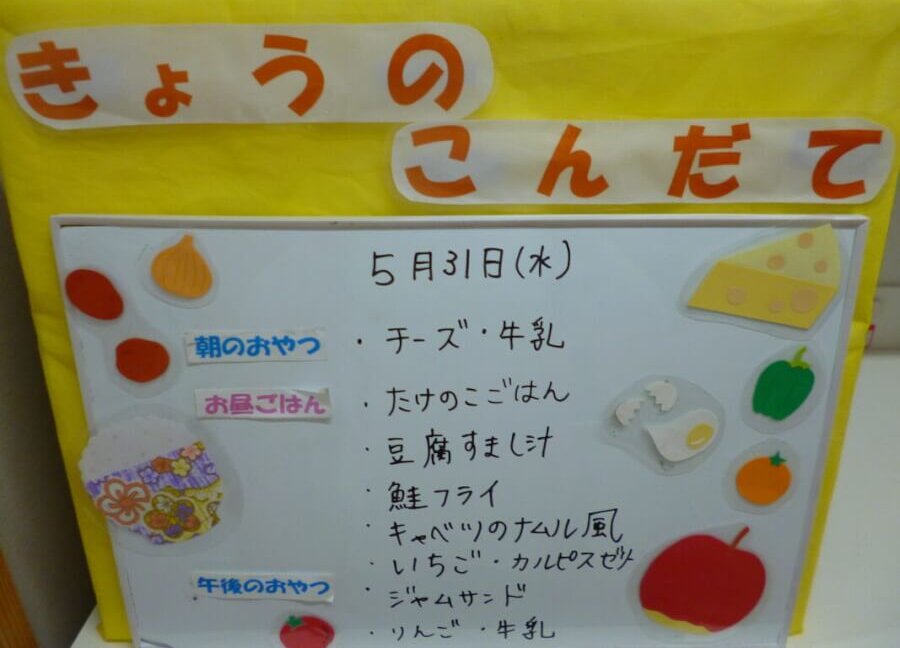 きょうの
こんだて
5月31日(水)
朝のおやつ ・チーズ・牛乳
お昼ごはん ・たけのこごはん
・豆腐すまし汁
・鮭フライ
・キャベツのナムル風
・いちご・カルピスゼリー
午後のおやつ ・ジャムサンド
・りんご・牛乳